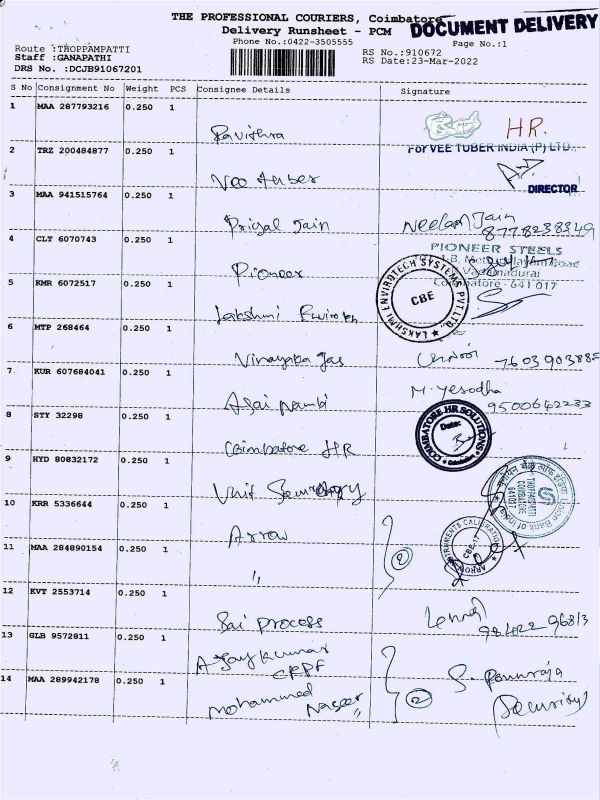 THE PROFESSIONAL COURIERS, Coimbatore
DOCUMENT DELIVERY
Delivery Runsheet - PCM
Phone No.:0422-3505555
Page No.:1
Route :THOPPAMPATTI
RS No.:910672
Staff :GANAPATHI
RS Date:23-Mar-2022
DRS No. :DCJB91067201
S No Consignment No Weight PCS Consignee Details Signature
1 MAA 287793216 0.250 1
Pavithra HR.
For VEE TUBER INDIA (P) LTD.,
2 TRZ 200484877 0.250 1
Vee tuber
DIRECTOR
3 MAA 941515764 0.250 1
Priyal Jain Neelam Jain
8778238349
4 CLT 6070743 0.250 1
PIONEER STEELS
Pioneer
Vadamadurai
Coimbatore - 641 017
5 KMR 6072517 0.250 1
LAKSHMI ENVIROTECH SYSTEMS PVT.LTD.
CBE
Lakshmi
6 MTP 268464 0.250 1
Vinayaka gas
7 KUR 607684041 0.250 1
M. Yesodha
9500642233
8 STY 32298 0.250 1
COIMBATORE HR SOLUTIONS
Date:
Coimbatore HR
9 HYD 80832172 0.250 1
Unit
Union Bank of India
THOPPAMPATTI
COIMBATORE
641017
10 KRR 5336644 0.250 1
Arrow
ARROW INSTRUMENTS CALIBRATION
CBE-17
11 MAA 284890154 0.250 1
2
"
12 KVT 2553714 0.250 1
Sai process
13 GLB 9572811 0.250 1
Ajaykumar
CRPF
14 MAA 289942178 0.250 1
Mohammed Naseer "
2
Security